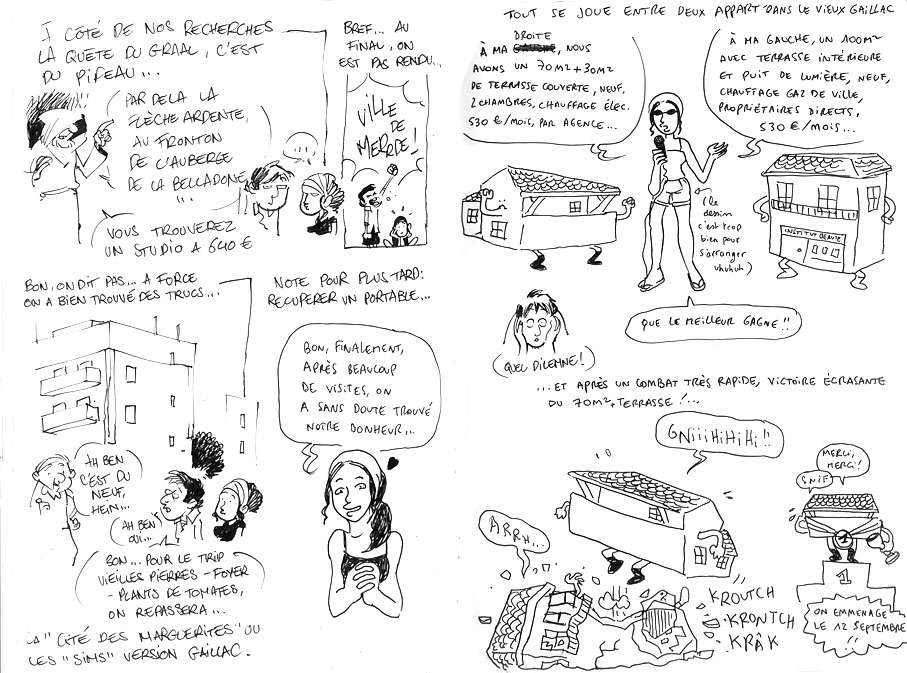 À CÔTÉ DE NOS RECHERCHES
LA QUÊTE DU GRAAL, C'EST
DU PIPEAU...
PAR DELA LA
FLÈCHE ARDENTE,
AU FRONTON
DE L'AUBERGE
DE LA BELLADONE
...
VOUS TROUVEREZ
UN STUDIO A 640 €
...
BREF... AU
FINAL, ON
EST PAS RENDU...
VILLE
DE
MERRDE!
BON, ON DIT PAS... A FORCE
ON A BIEN TROUVÉ DES TRUCS...
AH BEN
C'EST DU
NEUF,
HEIN...
AH BEN
OUI...
BON... POUR LE TRIP
VIEILLES PIERRES - FOYER
- PLANTS DE TOMATES,
ON REPASSERA...
LA "CITÉ DES MARGUERITES" OU
LES "SIMS" VERSION GAILLAC.
NOTE POUR PLUS TARD:
RECUPERER UN PORTABLE...
BON, FINALEMENT,
APRÈS BEAUCOUP
DE VISITES, ON
A SANS DOUTE TROUVÉ
NOTRE BONHEUR...
TOUT SE JOUE ENTRE DEUX APPART DANS LE VIEUX GAILLAC
DROITE
À MA GAUCHE, NOUS
AVONS UN 70M2+30M2
DE TERRASSE COUVERTE, NEUF,
2 CHAMBRES, CHAUFFAGE ÉLEC.
530 €/MOIS, PAR AGENCE...
À MA GAUCHE, UN 100M2
AVEC TERRASSE INTÉRIEURE
ET PUIT DE LUMIÈRE, NEUF,
CHAUFFAGE GAZ DE VILLE,
PROPRIÉTAIRES DIRECTS,
530 €/MOIS...
(le
dessin
c'est trop
bien pour
s'arranger
uhuhuh)
INSTITUT BEAUTE
QUE LE MEILLEUR GAGNE!!
(QUEL DILEMNE!)
...ET APRÈS UN COMBAT TRÈS RAPIDE, VICTOIRE ÉCRASANTE
DU 70M2+TERRASSE!...
GNIIIHIHIHI!!
ARRH...
KROUTCH
KRONTCH
KRÂK
2
MERCI,
MERCI!
SNIF
1
1
ON EMMENAGE
LE 12 SEPTEMBRE
!!